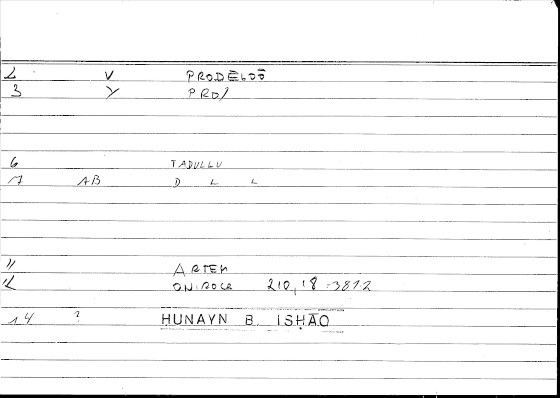 2 V PRODĒLOŌ
3 Y PRO/
6 TADULLU
7 AB D L L
11 ARTEM
12 ONIROCR 210,18 = 381.2
14 ? HUNAYN B. ISḤĀQ